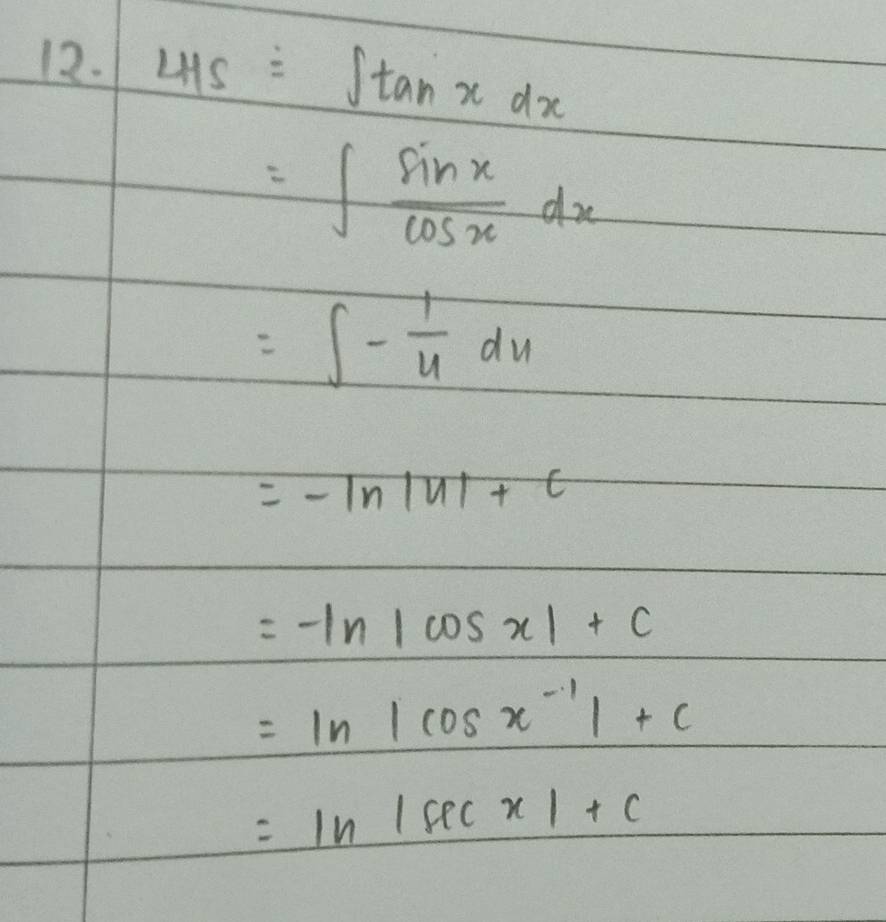 12. LHS = ∫tan x dx
= ∫ sin x / cos x dx
= ∫ - 1/u du
= -ln |u| + c
= -ln | cos x | + c
= ln | cos x⁻¹ | + c
= ln | sec x | + c